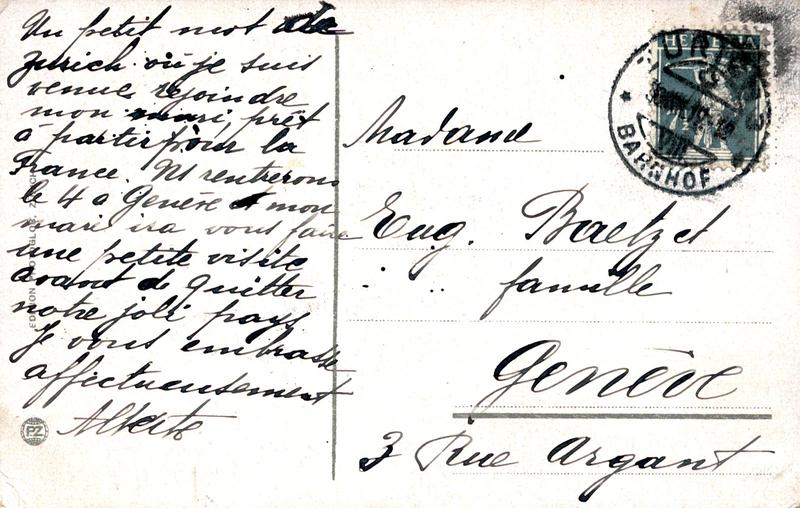 Un petit mot de
Zurich où je suis
venue rejoindre
mon mari, prêt
à partir pour la
France. Ns rentrerons
le 4 a Genève et mon
mari ira vous faire
une petite visite
avant de quitter
notre joli pays
Je vous embrasse
affectueusement
PZ
Madame
Eug. Baetz et
famille
Genève
3 Rue Argant
HELVETIA
BAHNHOF